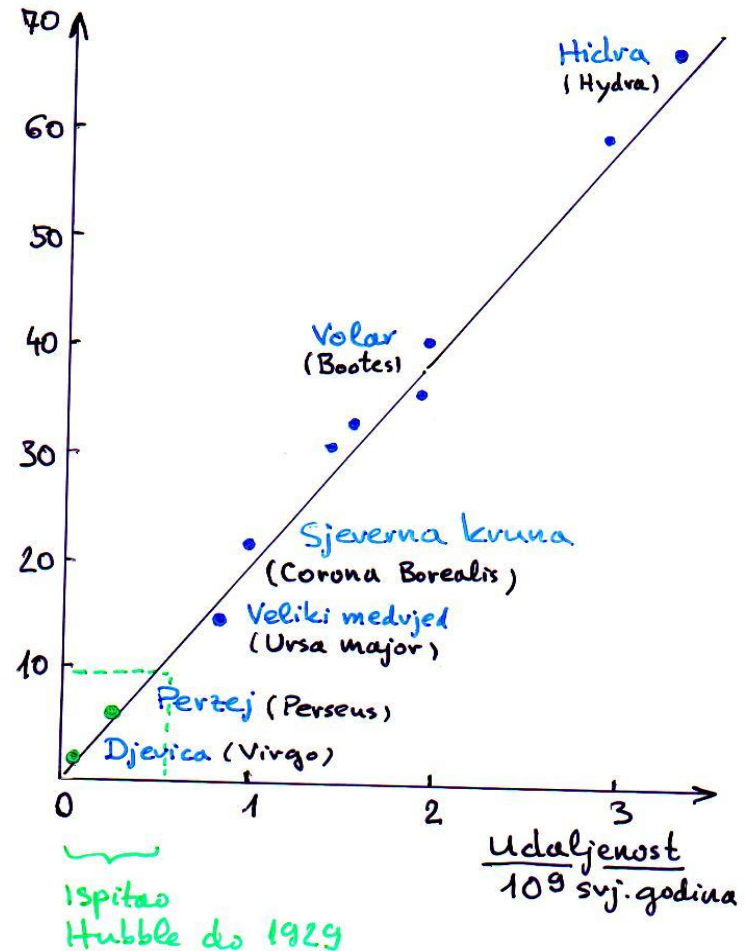 70
60
50
40
30
20
10
0
1
2
3
Hidra
(Hydra)
Volar
(Bootes)
Sjeverna kruna
(Corona Borealis)
Veliki medvjed
(Ursa major)
Perzej (Perseus)
Djevica (Virgo)
Udaljenost
10⁹ svj. godina
Ispitao
Hubble do 1929